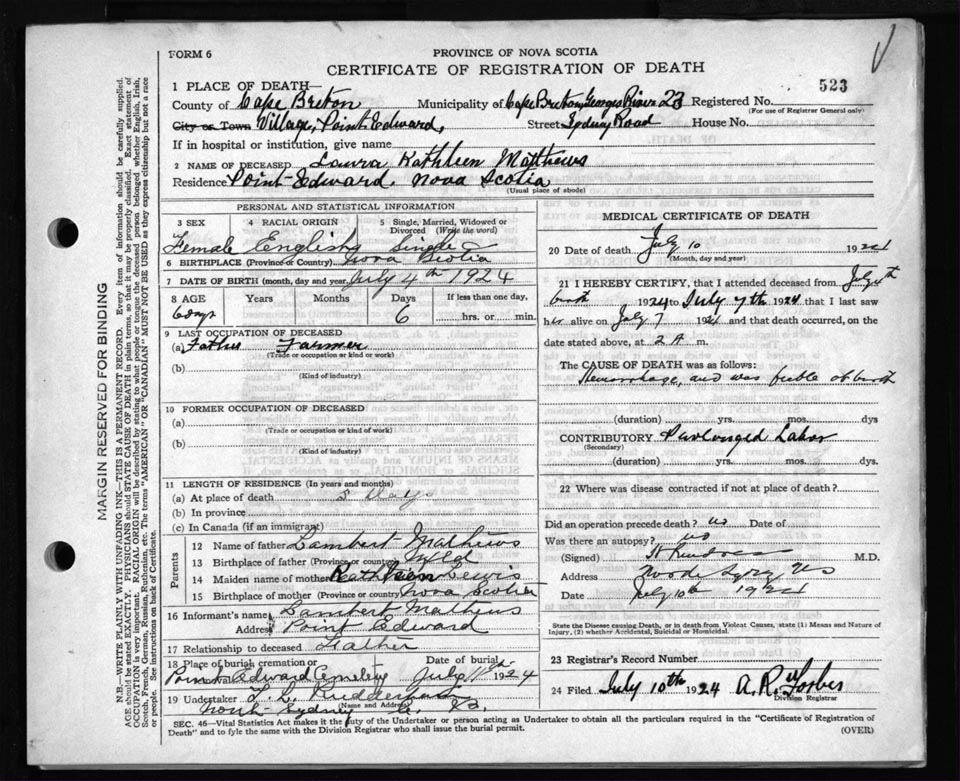 FORM 6
PROVINCE OF NOVA SCOTIA
CERTIFICATE OF REGISTRATION OF DEATH
523
1 PLACE OF DEATH—
County of Cape Breton Municipality of Cape Breton, Georges River 23 Registered No.
(For use of Registrar General only)
City or Town Village, Point Edward, Street Sydney Road House No.
If in hospital or institution, give name
2 NAME OF DECEASED Laura Kathleen Matthews
Residence Point Edward, Nova Scotia
(Usual place of abode)
PERSONAL AND STATISTICAL INFORMATION
3 SEX 4 RACIAL ORIGIN 5 Single, Married, Widowed or Divorced (Write the word)
Female English Single
6 BIRTHPLACE (Province or Country) Nova Scotia
7 DATE OF BIRTH (month, day and year) July 4th 1924
8 AGE Years Months Days If less than one day,
6 days 6 hrs. or min.
9 LAST OCCUPATION OF DECEASED
(a) Father Farmer
(Trade or occupation or kind or work)
(b)
(Kind of industry)
10 FORMER OCCUPATION OF DECEASED
(a)
(Trade or occupation or kind of work)
(b)
(Kind of industry)
11 LENGTH OF RESIDENCE (In years and months)
(a) At place of death days
(b) In province
(c) In Canada (if an immigrant)
Parents
12 Name of father Lambert Mathews
13 Birthplace of father (Province or country) Nfld
14 Maiden name of mother Kathleen Lewis
15 Birthplace of mother (Province or country) Nova Scotia
16 Informant's name Lambert Mathews
Address Point Edward
17 Relationship to deceased Father
18 Place of burial cremation or Date of burial
Point Edward July 1924
19 Undertaker
(Name and Address)
North Sydney C. B.
MEDICAL CERTIFICATE OF DEATH
20 Date of death July 10 1924
(Month, day and year)
21 I HEREBY CERTIFY, that I attended deceased from July
birth 1924 to July 7th 1924 that I last saw
her alive on July 7 1924 and that death occurred, on
date stated above, at 2 A m.
The CAUSE OF DEATH was as follows:
Hemorrhage, and was feeble at birth
(duration) yrs. mos. dys
CONTRIBUTORY Prolonged Labor
(Secondary)
(duration) yrs. mos. dys.
22 Where was disease contracted if not at place of death?
Did an operation precede death? no Date of
Was there an autopsy? no
(Signed) M.D.
Address
Date July 10th 1924
State the Disease causing Death, or in death from Violent Causes, state (1) Means and Nature of Injury, (2) whether Accidental, Suicidal or Homicidal.
23 Registrar's Record Number
24 Filed July 10th 1924 A. R. Forbes
Division Registrar
SEC. 46—Vital Statistics Act makes it the duty of the Undertaker or person acting as Undertaker to obtain all the particulars required in the "Certificate of Registration of Death" and to fyle the same with the Division Registrar who shall issue the burial permit.
(OVER)
MARGIN RESERVED FOR BINDING
N.B.—WRITE PLAINLY WITH UNFADING INK—THIS IS A PERMANENT RECORD. Every item of information should be carefully supplied. AGE should be stated EXACTLY. PHYSICIANS should STATE CAUSE OF DEATH in plain terms, so that it may be properly classified. Exact statement of OCCUPATION is very important. RACIAL ORIGIN will be described by stating to what people or tongue the deceased person belonged whether English, Irish, Scotch, French, German, Russian, Ruthenian, etc. The terms "AMERICAN" OR "CANADIAN" MUST NOT BE USED as they express citizenship but not a race or people. See instructions on back of Certificate.